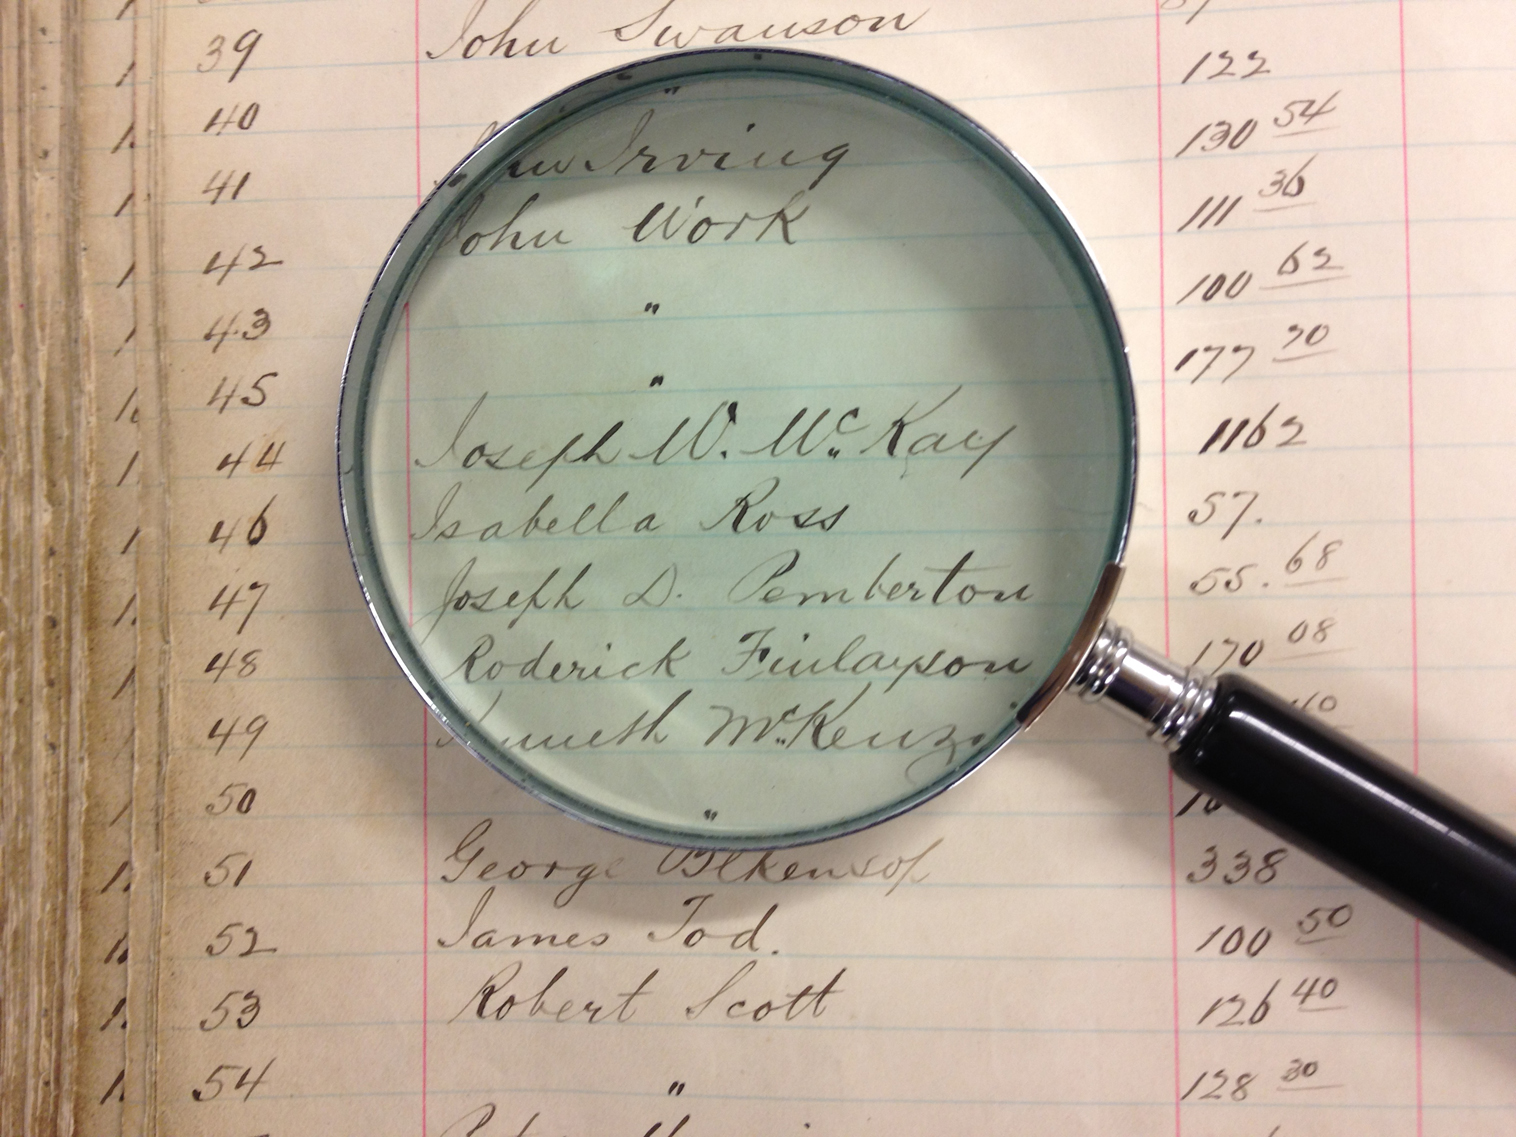 39 John Swanson
122
40 "
130 54
41 Irving
111 36
42 John Work
100 62
43 "
177 70
45 "
1162
44 Joseph W. McKay
57.
46 Isabella Ross
55. 68
47 Joseph D. Pemberton
170 08
48 Roderick Finlayson
40
49 Kenneth McKenzi
50 "
51 George Blkensop
338
52 James Tod.
100 50
53 Robert Scott
126 40
54 "
128 30